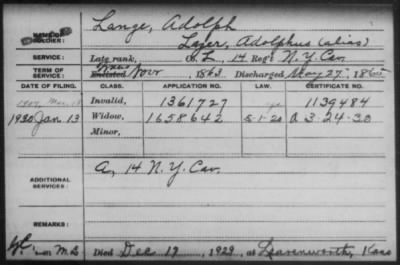 Lange, Adolph
SOLDIER:
Lajer, Adolphus (alias)
SERVICE:
Late rank, Co. L, 14 Reg't N.Y. Cav.
TERM OF SERVICE:
Enlisted Nov 1863 Discharged May 27, 1865
DATE OF FILING. CLASS. APPLICATION NO. LAW. CERTIFICATE NO.
Invalid, 1361727 1139484
1930 Jan 13 Widow, 1658642 5-1-20 A 3-24-30
Minor,
ADDITIONAL SERVICES:
A, 14 N.Y. Cav.
REMARKS:
Died Dec 19, 1929, at Leavenworth, Kans